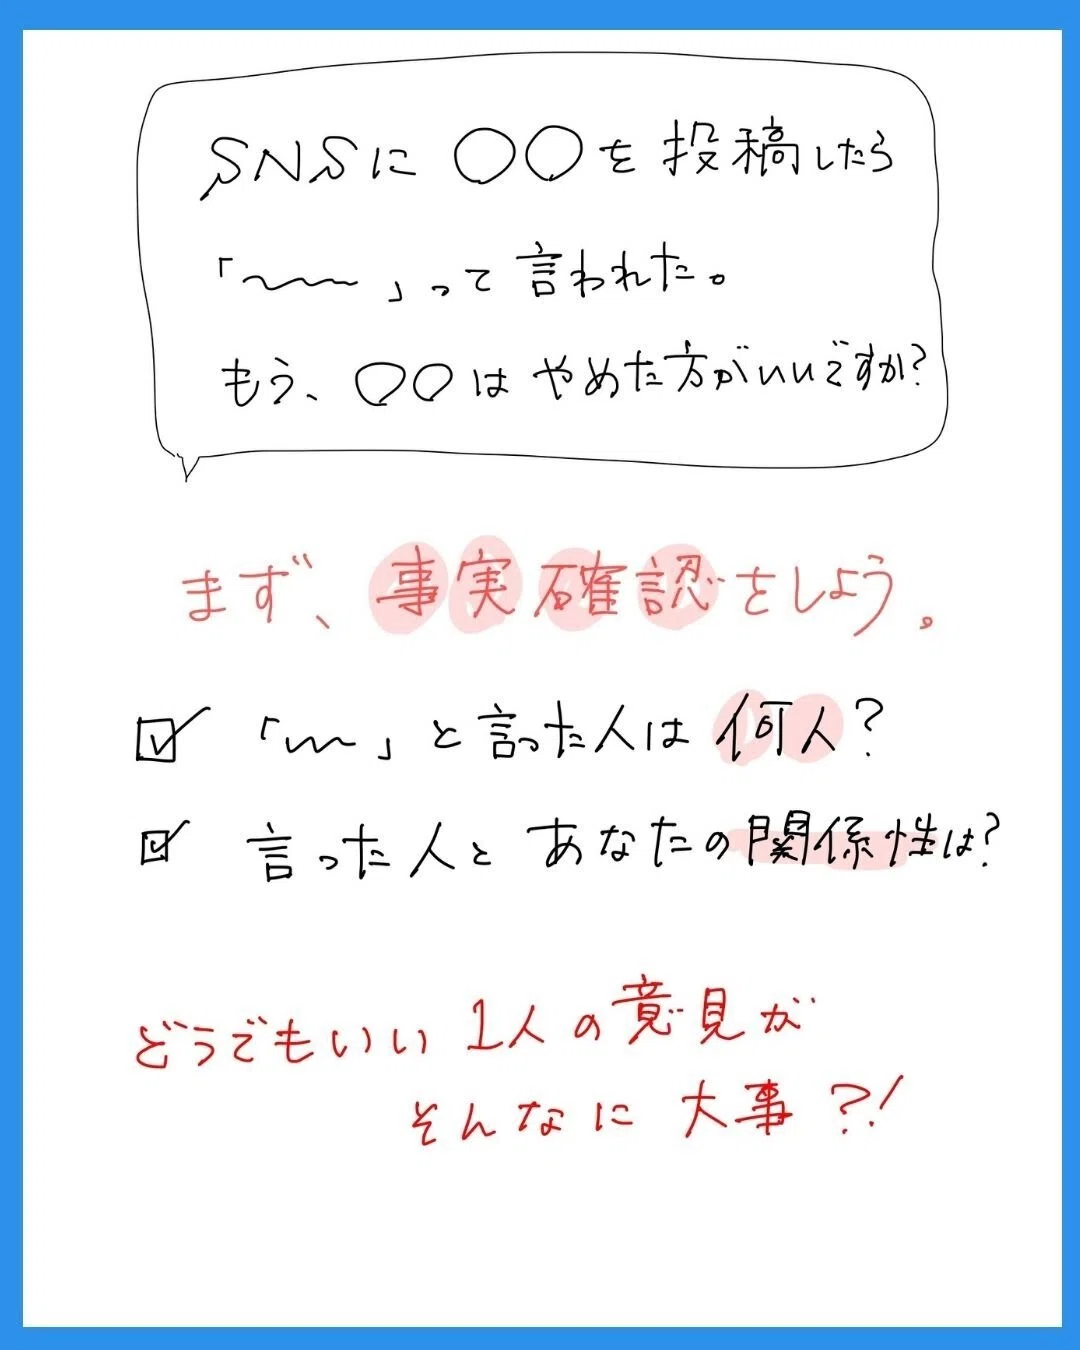 SNSに〇〇を投稿したら
「〜〜」って言われた。
もう、〇〇はやめた方がいいですか?
まず、事実確認をしよう。
☑ 「〜〜」と言った人は何人?
☑ 言った人とあなたの関係性は?
どうでもいい1人の意見が
そんなに大事?!